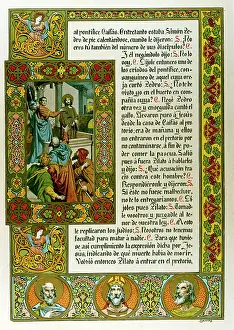 al pontífice Caifás. Entretanto estaba Simón Pe-
dro de pie calentándose, cuando le dijeron: S. ¿No
eres tú también del número de sus discípulos? C.
Y él negándolo dijo: S. No lo
soy. C. Díjole entonces uno de
los criados del pontífice, con-
sanguíneo de aquel cuya ore-
ja cortó Pedro: S. ¿No te
vi yo en el huerto en com-
pañía suya? C. Negó Pedro
otra vez, y enseguida cantó el
gallo. Llevaron pues a Jesús
desde la casa de Caifás al pre-
torio, era de mañana y ellos
no entraron en el pretorio por
no contaminarse, a fin de po-
der comer la pascua. Salió
pues a fuera Pilato a hablarles
y dijo: S. ¿Qué acusación tra-
éis contra este hombre? C.
Respondiéronle y dijeron: S.
Si éste no fuese malhechor,
no te lo entregaríamos. C. Dí-
joles pues Pilato: S. Tomad-
le vosotros y juzgadle al te-
nor de vuestra ley. C. A esto
le replicaron los judíos: S. Nosotros no tenemos
facultad para matar a nadie. C. Para que tuvie-
se así cumplimiento la expresión dicha por Je-
sús, indicando de qué muerte había de morir.
Volvió entonces Pilato a entrar en el pretorio,